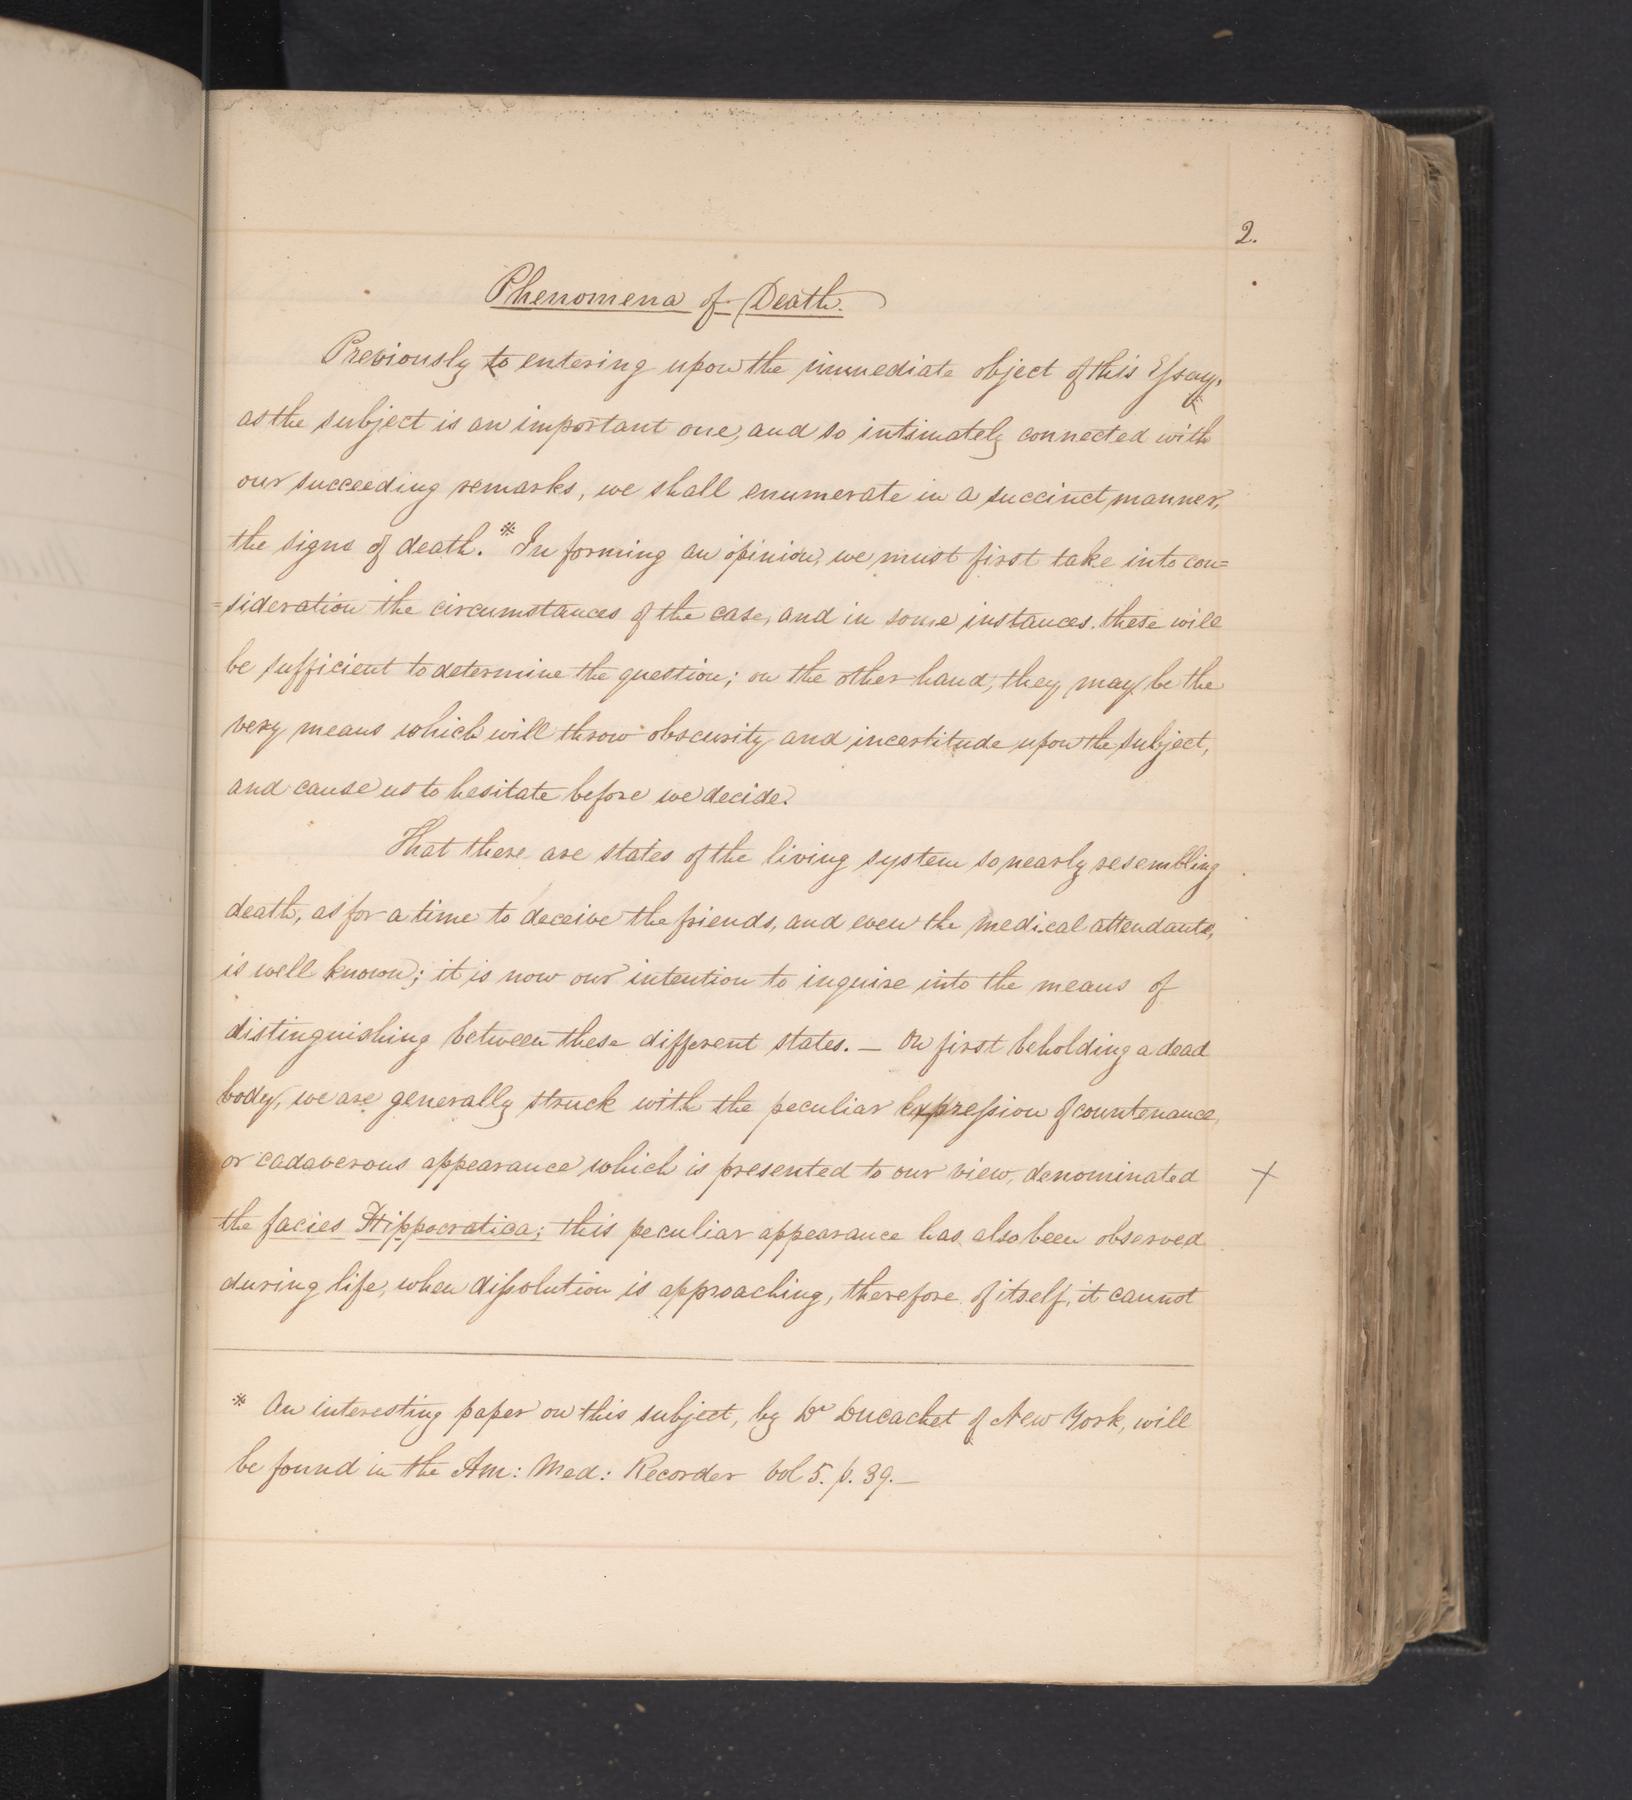 2.
Phenomena of Death.
Previously to entering upon the immediate object of this Essay,
as the subject is an important one, and so intimately connected with
our succeeding remarks, we shall enumerate in a succinct manner,
the signs of death.* In forming an opinion, we must first take into con=
=sideration the circumstances of the case, and in some instances these will
be sufficient to determine the question; on the other hand, they may be the
very means which will throw obscurity and incertitude upon the subject,
and cause us to hesitate before we decide.
That there are states of the living system so nearly resembling
death, as for a time to deceive the friends, and even the medical attendants,
is well known; it is now our intention to inquire into the means of
distinguishing between these different states. — On first beholding a dead
body, we are generally struck with the peculiar expression of countenance,
or cadaverous appearance which is presented to our view, denominated
the facies Hippocratica; this peculiar appearance has also been observed
during life, when dissolution is approaching, therefore of itself, it cannot
* An interesting paper on this subject, by Dr Ducachet of New York, will
be found in the Am: Med: Recorder Vol 5. p. 39.—